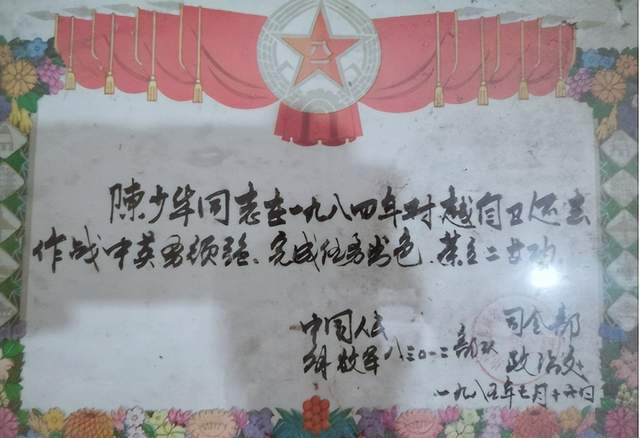 八一
陳少华同志在一九八四年对越自卫还击
作战中英勇顽强、完成任务出色、荣立二等功。
中国人民 司令部
解放军八三〇一二部队 政治处
一九八五年 月十六日